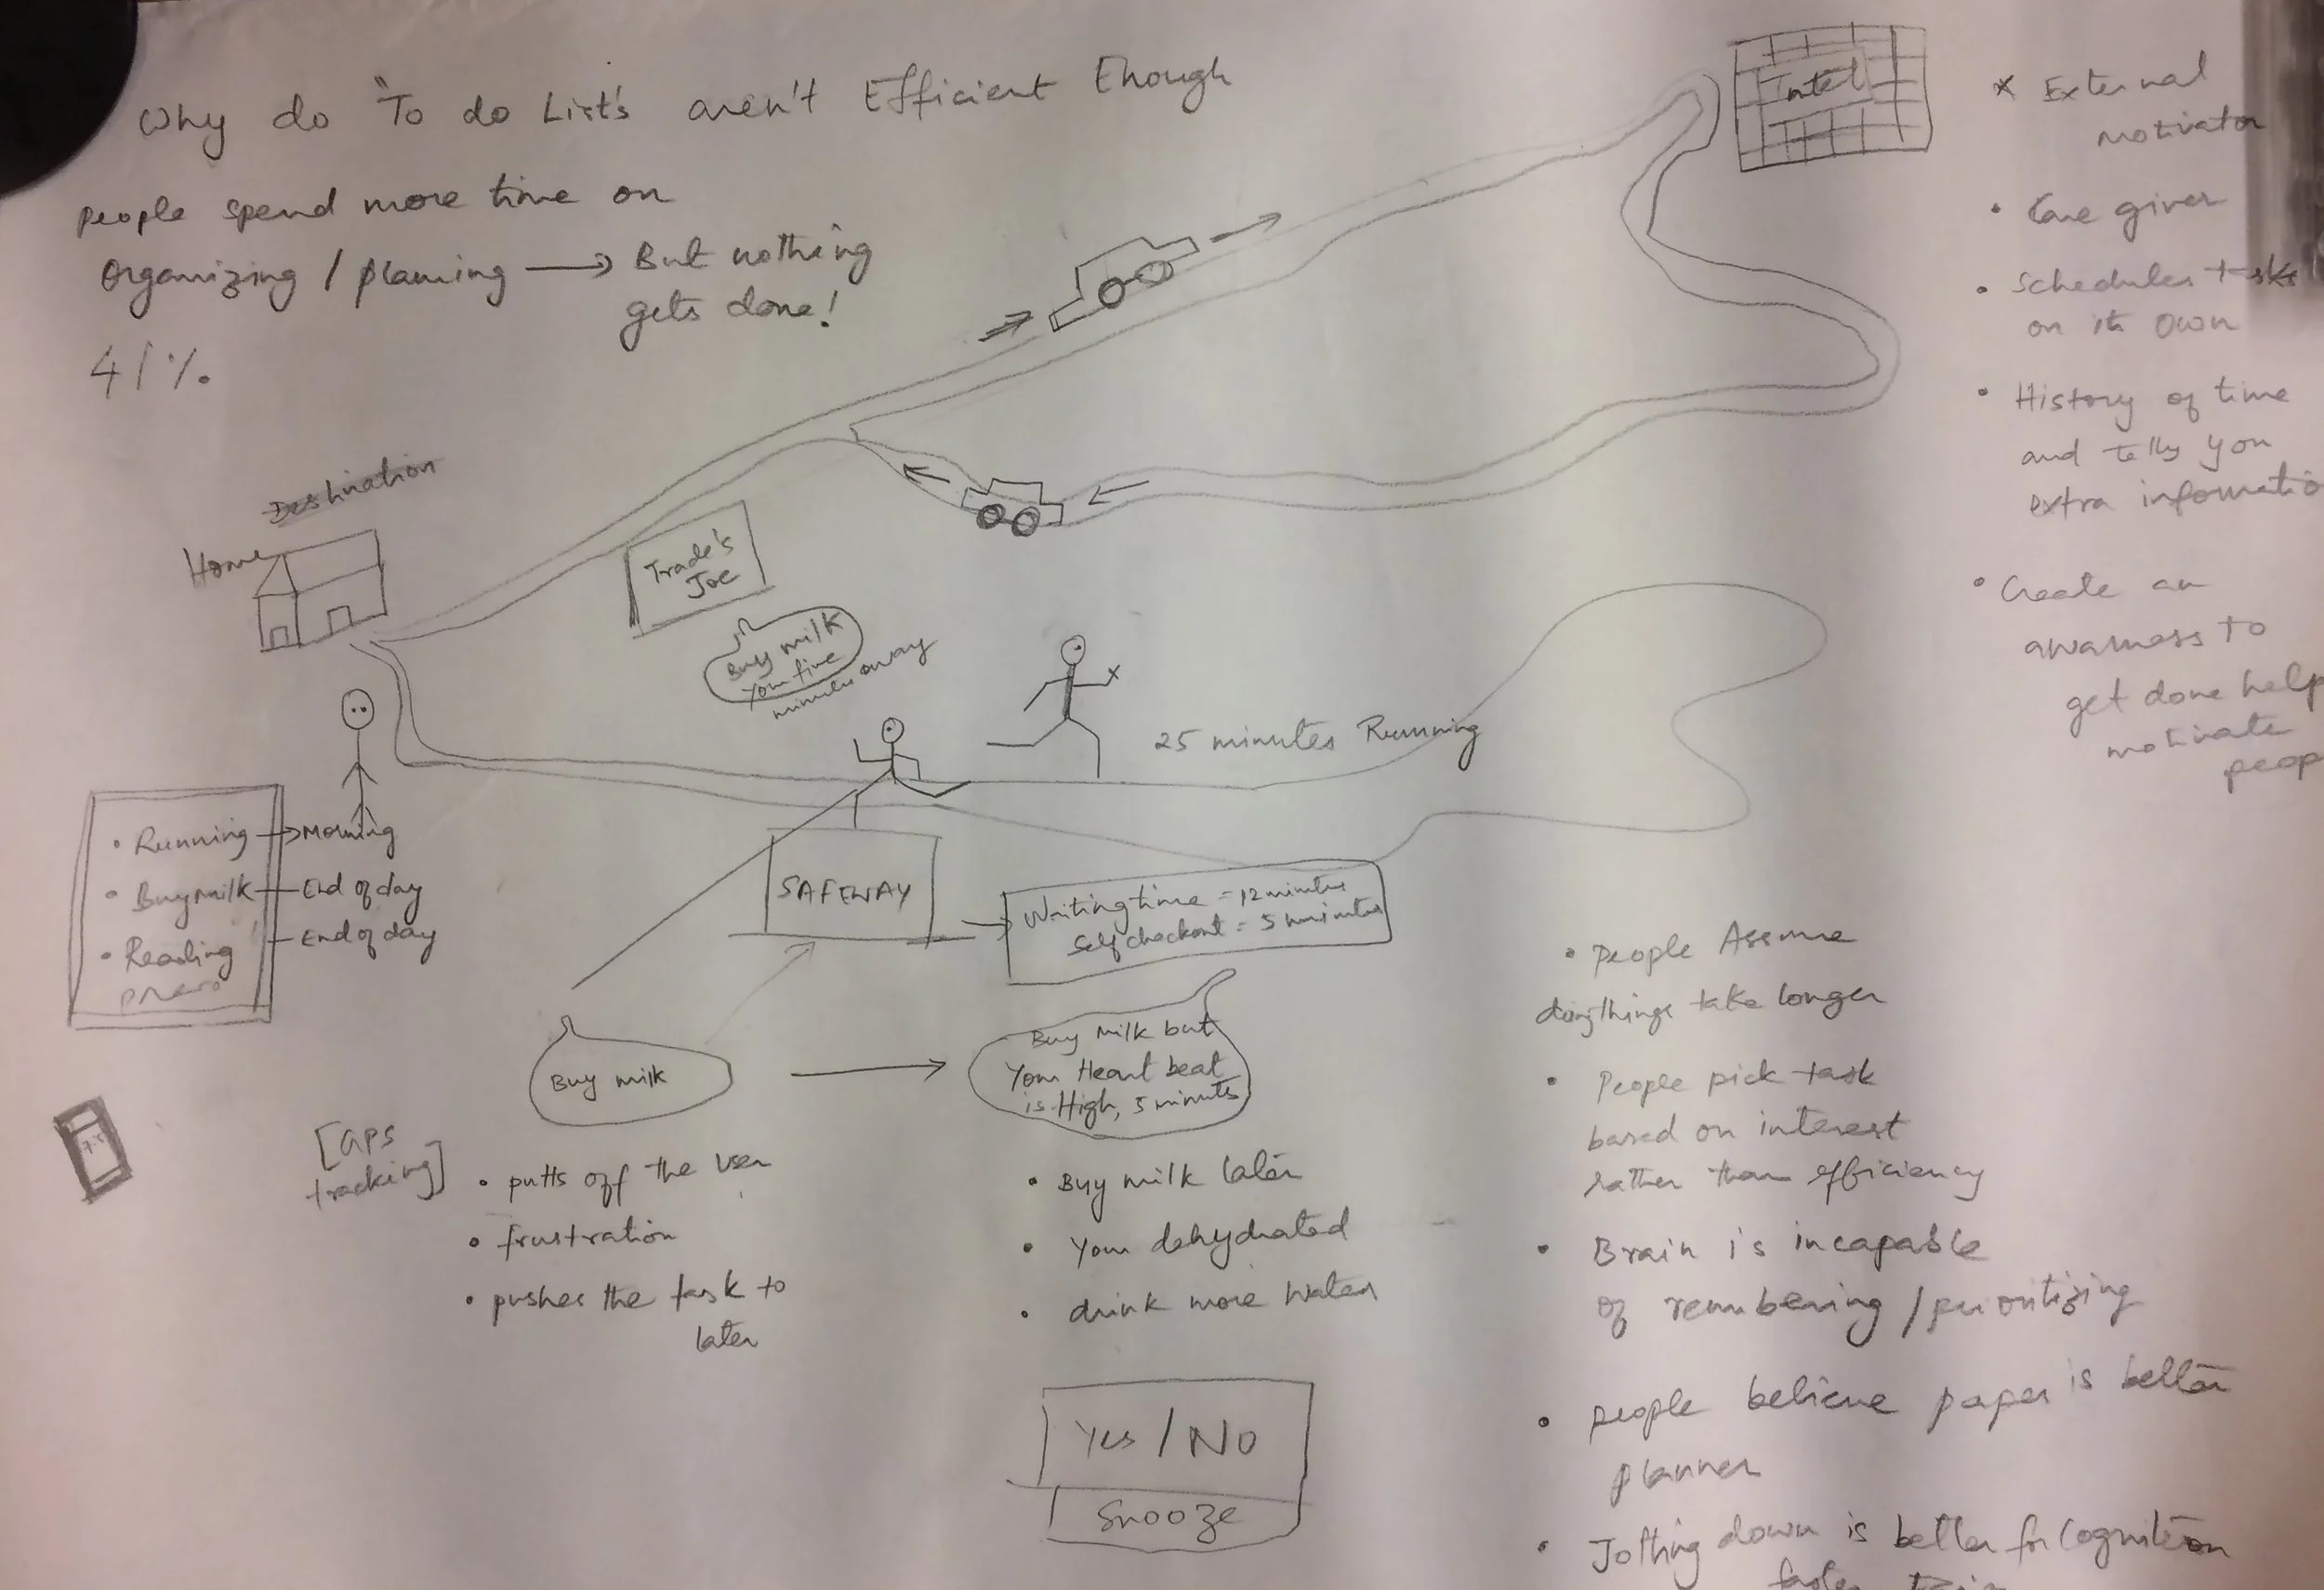 Why do "To do List's aren't Efficient Enough
people spend more time on
Organizing / planning → But nothing
gets done!
41%.
Intel
x External
motivator
• Care giver
• Schedules tasks
on its own
• History of time
and tells you
extra informatio
• Create an
awarness to
get done help
motivate
peop
Destination
Home
Trade's
Joe
Buy milk
You five
minutes away
25 minutes Running
• Running → Morning
• Buy milk — End of day
• Reading — End of day
SAFEWAY
Waiting time = 12 minutes
Self checkout = 5 minutes
Buy milk
Buy Milk but
Your Heart beat
is High, 5 minutes
[GPS
tracking]
• putts off the user
• frustration
• pushes the task to
later
• Buy milk later
• You dehydrated
• drink more water
Yes / No
Snooze
• People Assume
doing things take longer
• People pick task
based on interest
rather than efficiency
• Brain is incapable
of remembering / prioritizing
• people believe paper is better
planner
• Jotting down is better for Cognition